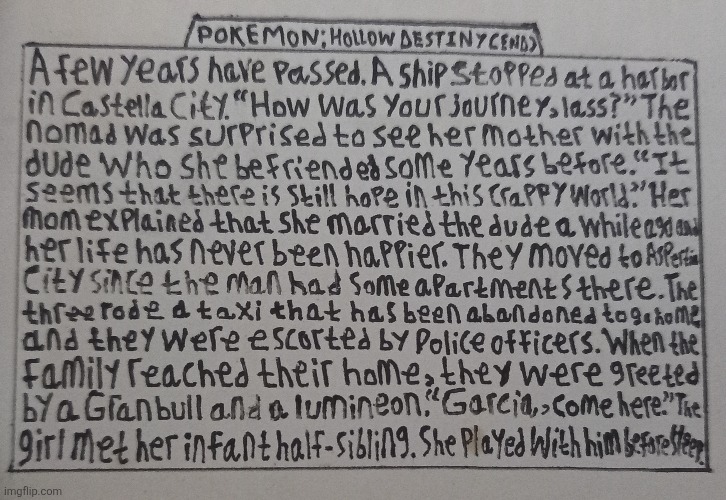 POKEMON; HOLLOW DESTINY (END)
A few years have passed. A ship stopped at a harbor
in Castella City. “How was your journey, lass?” The
nomad was surprised to see her mother with the
dude who she befriended some years before. “It
seems that there is still hope in this crappy world.” Her
mom explained that she married the dude a while ago and
her life has never been happier. They moved to Aspertia
City since the man had some apartments there. The
three rode a taxi that has been abandoned to go home
and they were escorted by police officers. When the
family reached their home, they were greeted
by a Granbull and a lumineon. “Garcia, come here.” The
girl met her infant half-sibling. She played with him before sleep.
imgflip.com